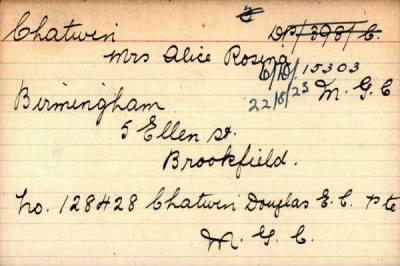 Chatwin DP/398/C.
Mrs Alice Rosina
6/10/15303
Birmingham 22/8/23 M. G. C
5 Ellen St.
Brookfield.
No. 128428 Chatwin Douglas E. C. Pte
M. G. C.